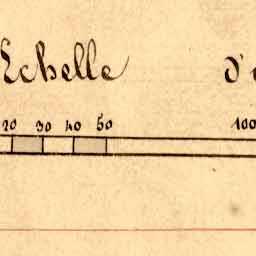 Echelle d'
20 30 40 50 100